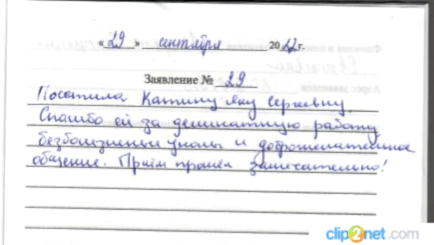 « 29 » сентября 2012 г.
Заявление № 29
Посетила Катину Яну Сергеевну.
Спасибо ей за деликатную работу
безболезненные уколы и доброжелательное
общение. Приём прошёл замечательно!
clip2net.com